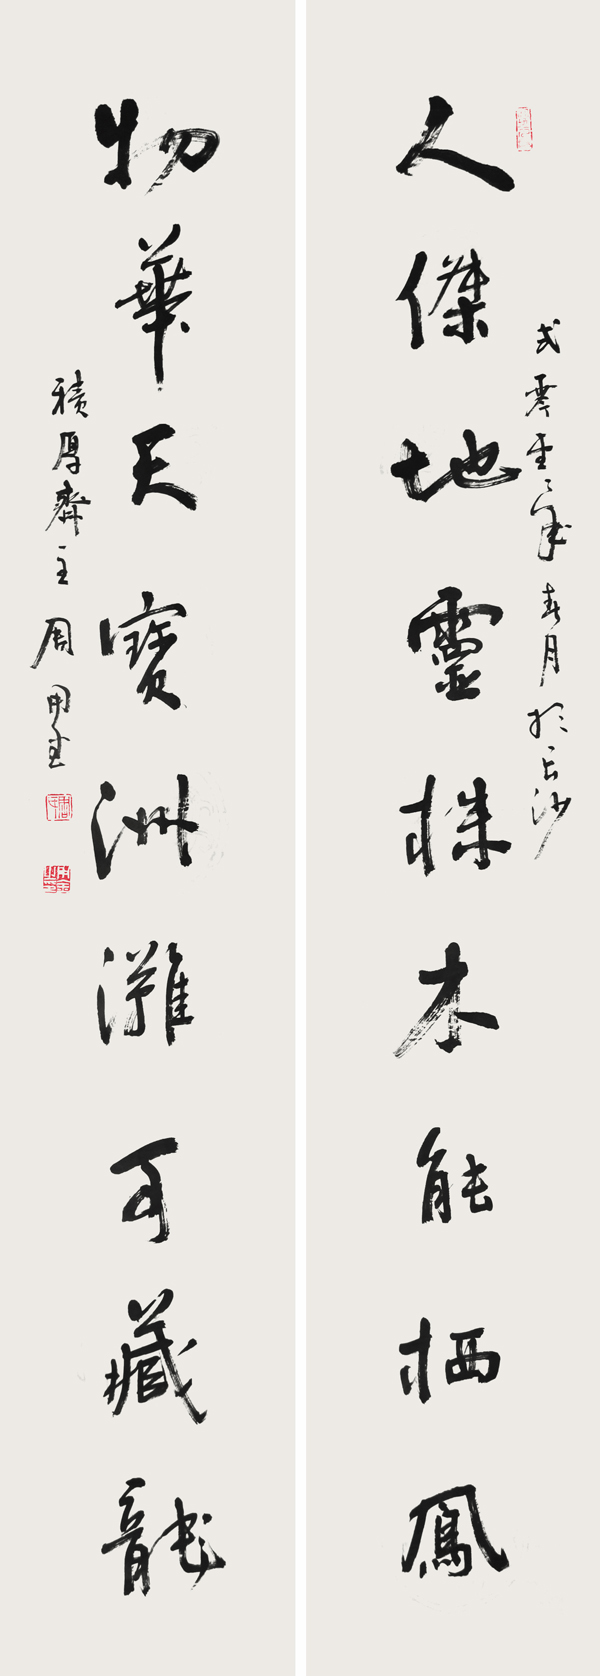 弍零年春月於长沙
人傑地靈株木能栖鳳
物華天寶洲灘可藏龍
積厚齋主周用金